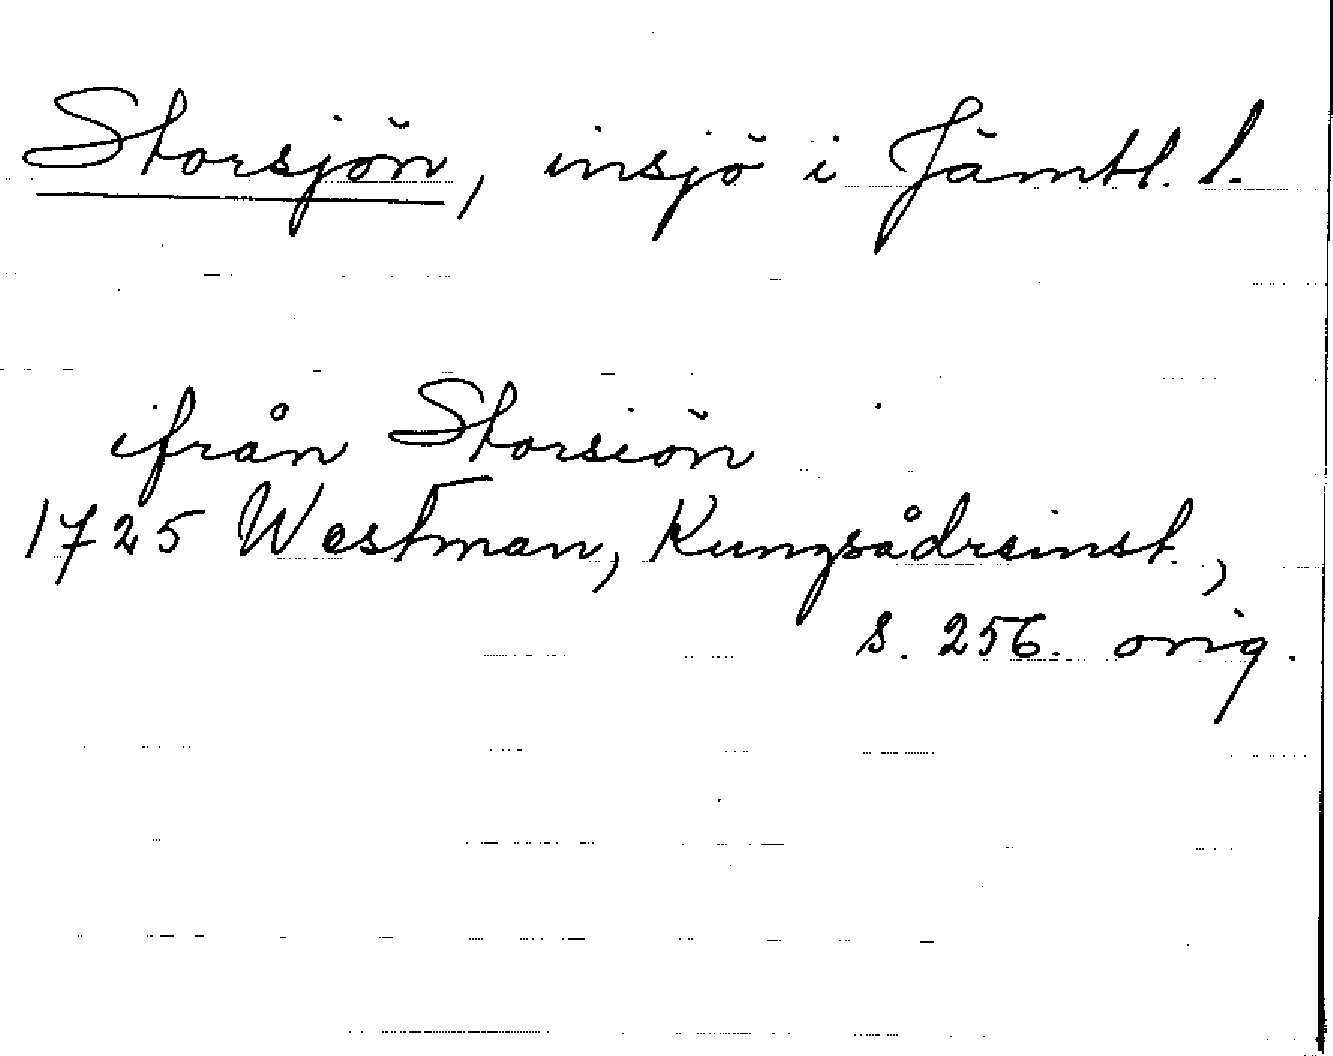 Storsjön, insjö i Jämtl. l.
ifrån Storsiön
1725 Westman, Kungsådreinst.,
s. 256. orig.